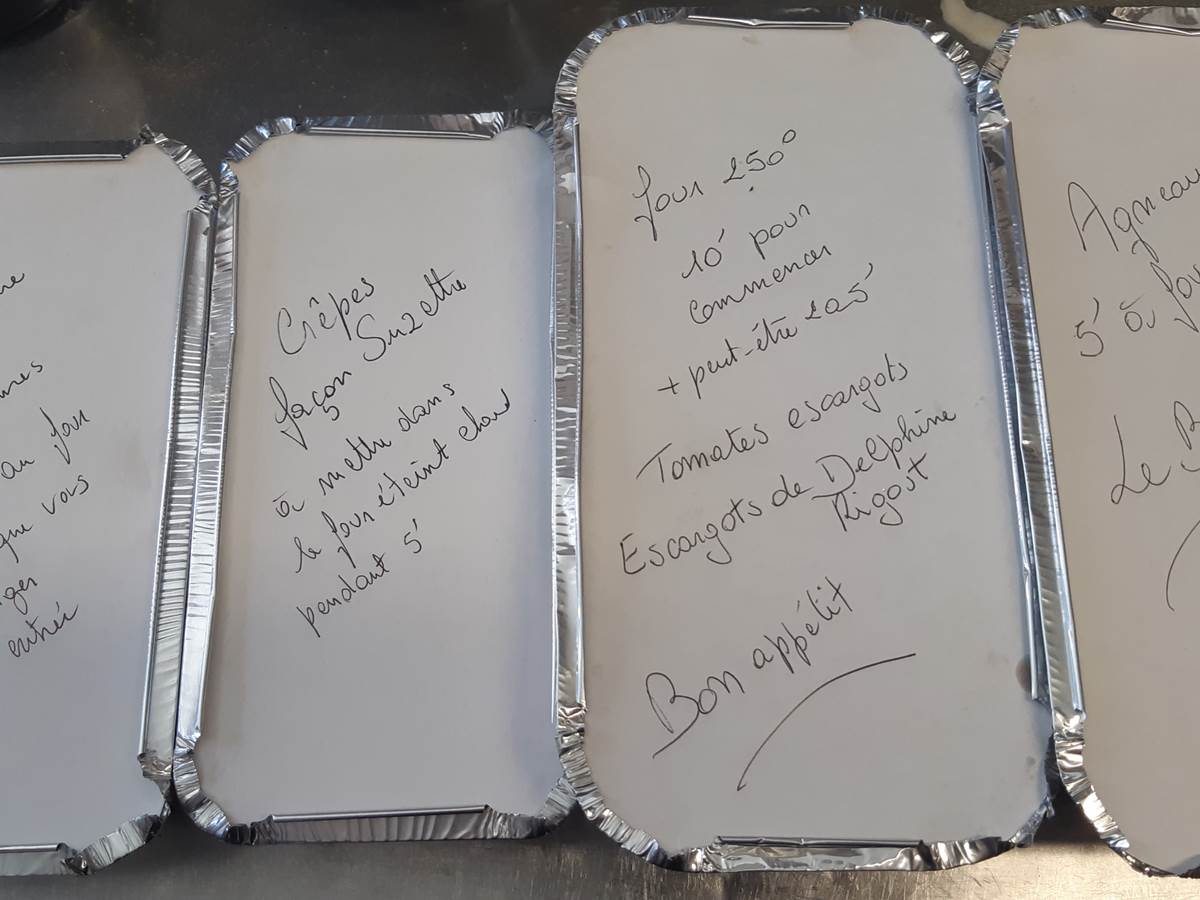 au four
que vous
entrée
Crêpes
façon Suzette
à mettre dans
le four éteint chaud
pendant 5'
four 250°
10' pour
commencer
+ peut-être 2 à 5'
Tomates escargots
Escargots de Delphine
Rigost
Bon appétit
Agneau
5' à
Le